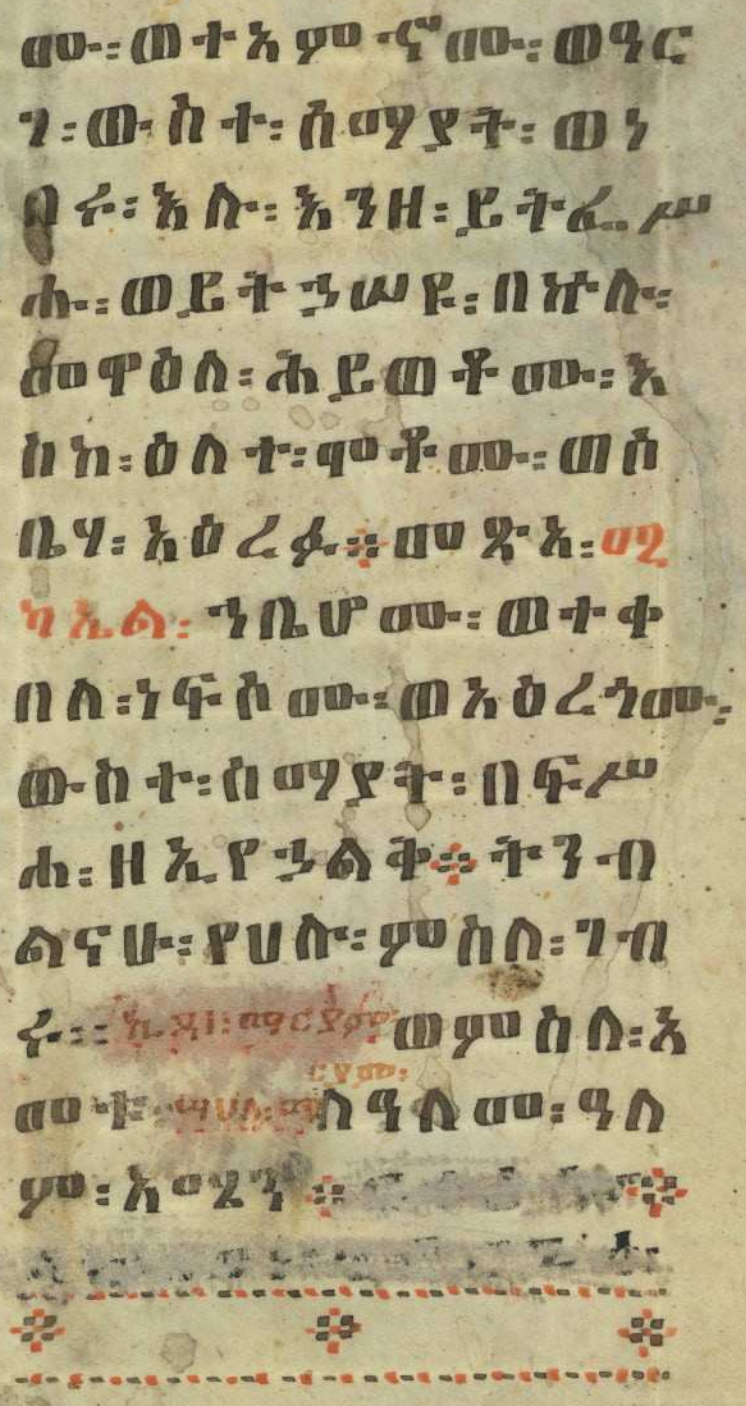 ሙ፡ወተአምኖሙ፡ወዓር
ገ፡ውስተ፡ሰማያት፡ወነ
በሩ፡እሉ፡እንዘ፡ይትፌሥ
ሑ፡ወይትኃሠዩ፡በኵሉ፡
መዋዕለ፡ሕይወቶሙ፡እ
ስከ፡ዕለተ፡ሞቶሙ፡ወሶ
ቤሃ፡አዕረፉ፨መጽአ፡ሚ
ካኤል፡ኀቤሆሙ፡ወተቀ
በለ፡ነፍሶሙ፡ወአዕረጎሙ፡
ውስተ፡ሰማያት፡በፍሥ
ሐ፡ዘኢየኃልቅ፨ትንብ
ልናሁ፡የሀሉ፡ምስለ፡ገብ
ሩ፡፡ ወምስለ፡አ
መቱ፡ ለዓለመ፡ዓለ
ም፡አሜን፨